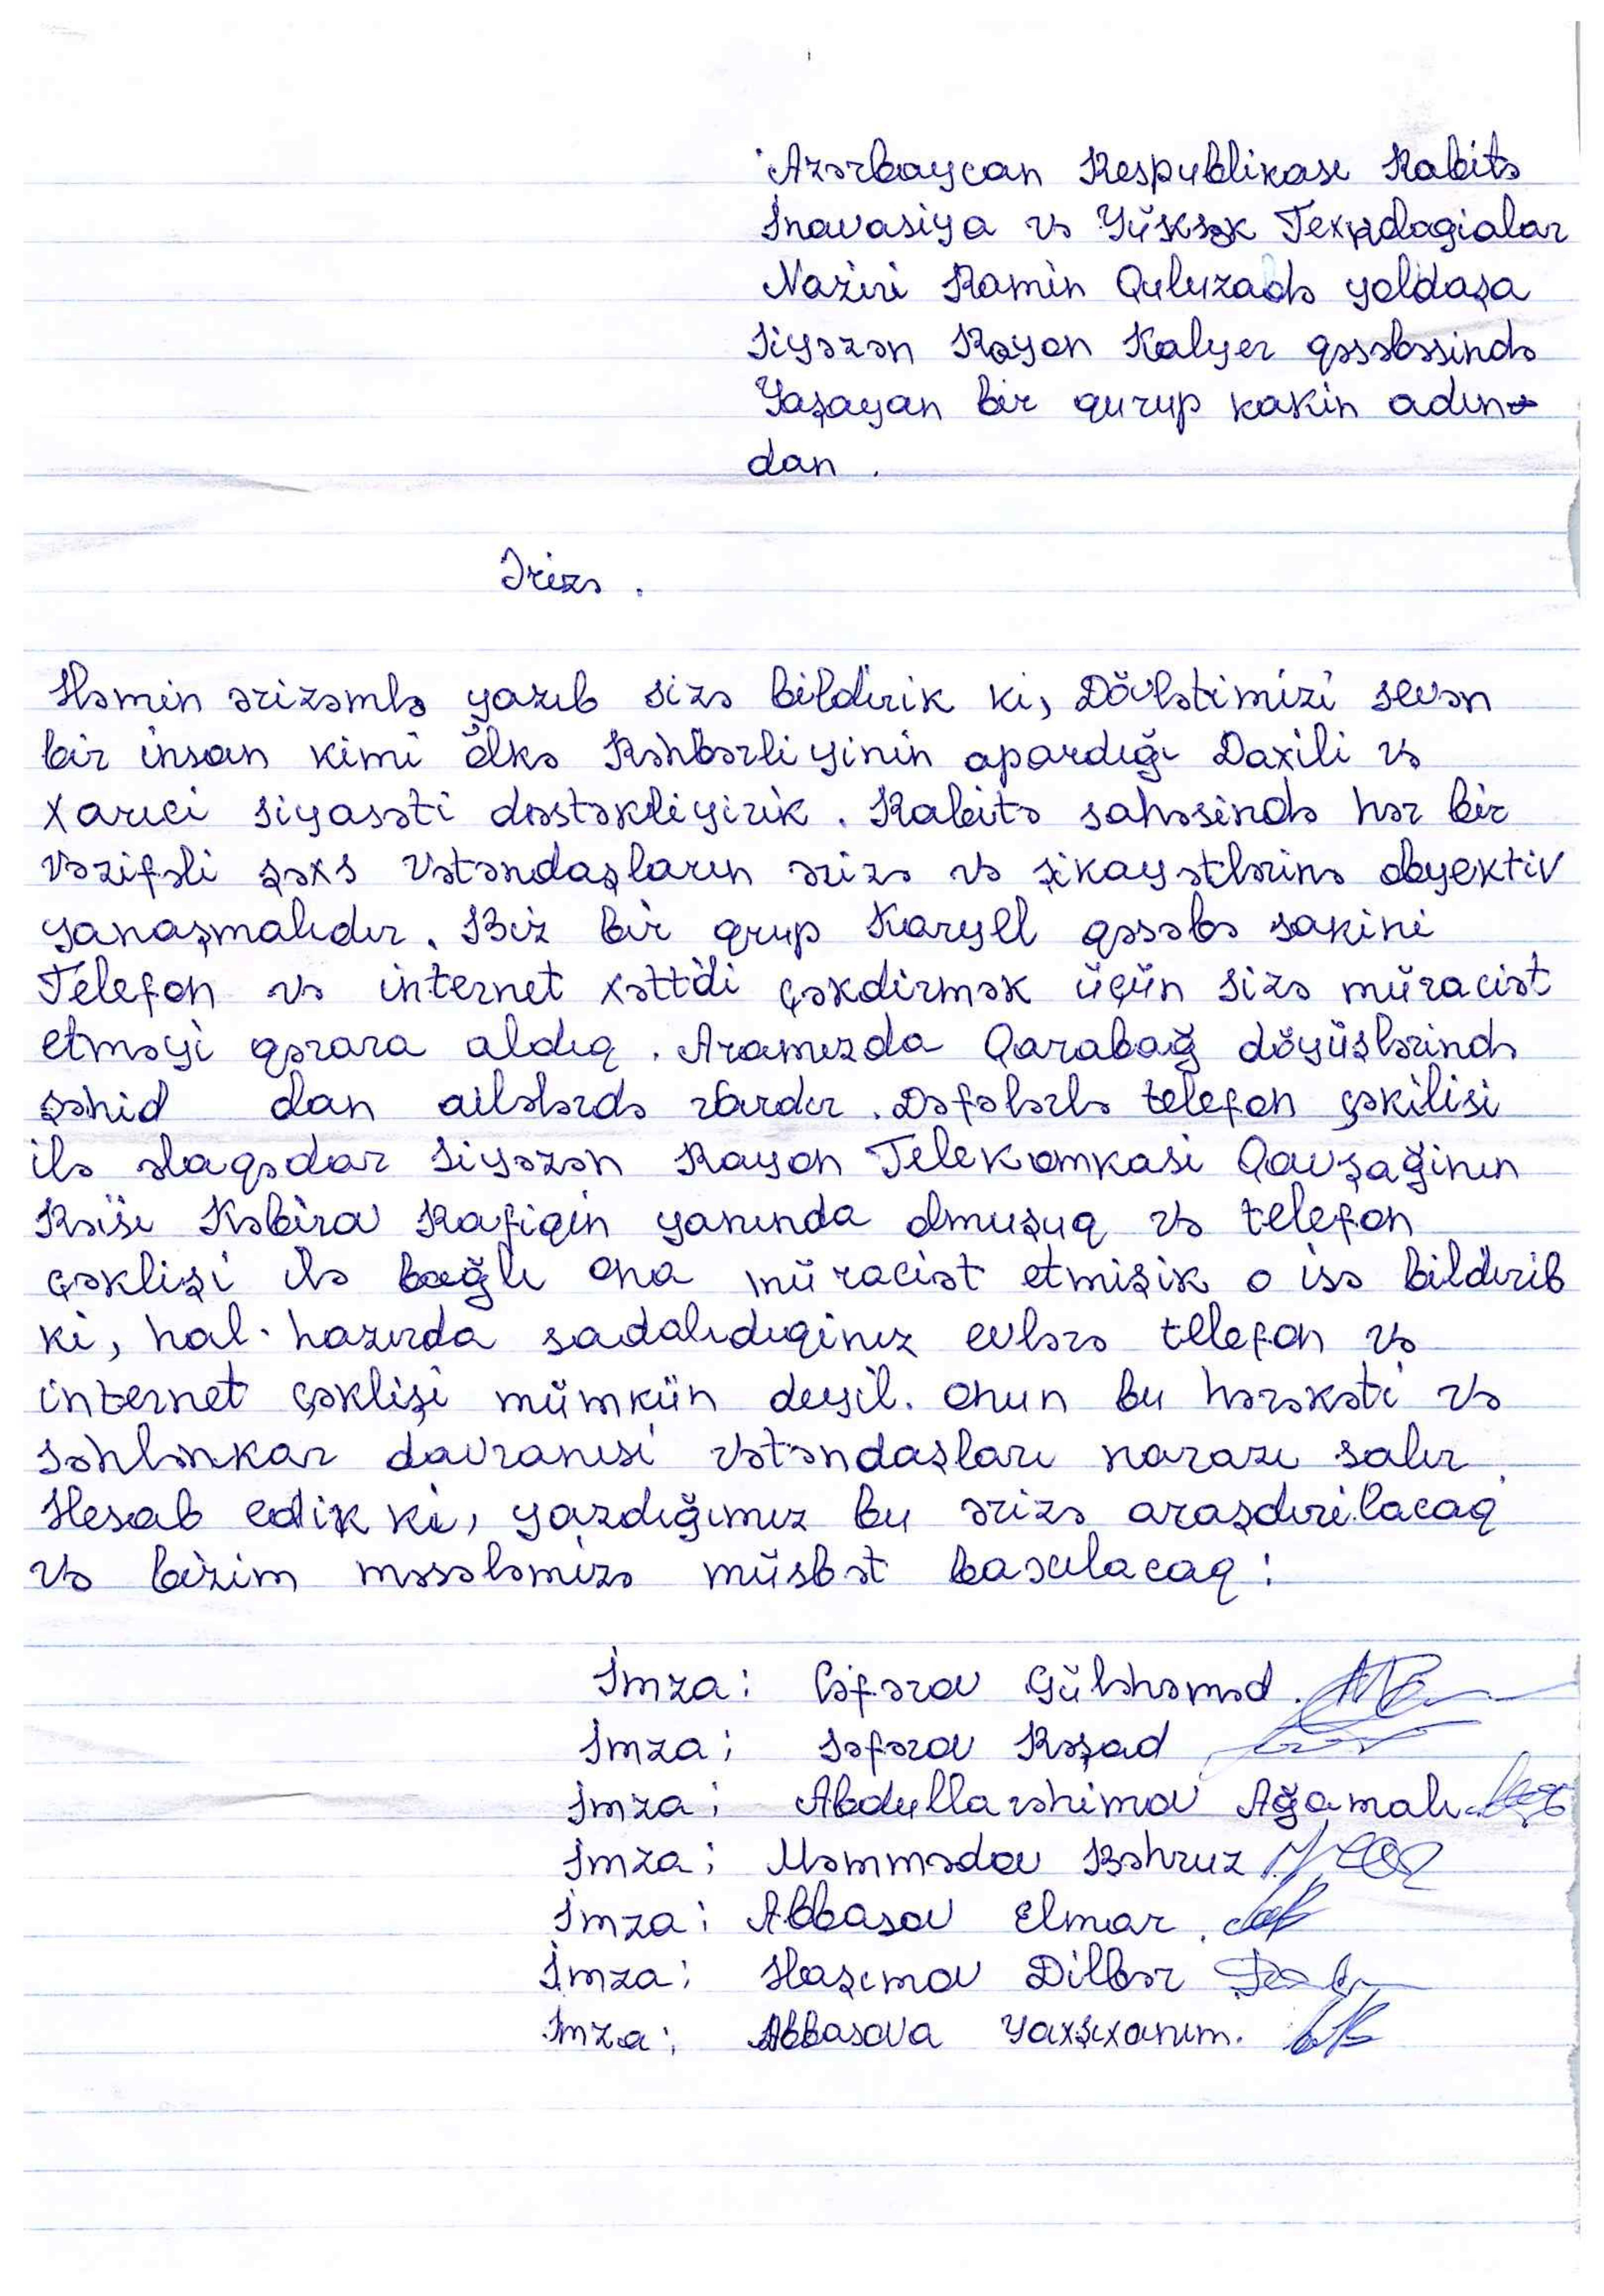 Azərbaycan Respublikası Rabitə
İnavasiya və Yüksək Texnologialar
Naziri Ramin Quluzadə yoldaşa
Siyəzən Rayon Kalyer qəsəbəsində
Yaşayan bir qurup sakin adın
dan .
Ərizə .
Həmin ərizəmlə yazıb sizə bildirik ki, Dövlətimizi sevən
bir insan kimi ölkə Rəhbərliyinin apardığı Daxili və
Xarici siyasəti dəstəkliyirik . Rabitə sahəsində hər bir
Vəzifəli şəxs Vətəndaşların ərizə və şikayətlərinə obyektiv
yanaşmalıdır. Biz bir qrup Karyel qəsəbə sakini
Telefon və internet xəttdi çəkdirmək üçün sizə müraciət
etməyi qərara aldıq . Aramızda Qarabağ döyüşlərində
şəhid olan ailələrdə vardır . Dəfələrlə telefon çəkilişi
ilə əlaqədar Siyəzən Rayon Telekomkasi Qovşağinın
Rəisi Kəbira Rafiqin yanında olmuşuq və telefon
çəklişi ilə bağlı ona müraciət etmişik o isə bildirib
ki, hal-hazırda sadalıdıqinız evlərə telefon və
internet çəklişi mümkün deyil. onun bu hərəkəti və
səhlənkar davranısi vətəndaşları narazı salır.
Hesab edik ki, yazdığımız bu ərizə araşdırılacaq
və bizim məsələmizə müsbət baxılacaq :
İmza : Cəfərov Güləhəməd.
İmza : Səfərov Rəşad
İmza : Abdullarəhimov Ağamalı
İmza : Məmmədov Bəhruz
İmza : Abbasov Elmar .
İmza : Haşımov Dilbər
İmza : Abbasova Yaxşıxanım.